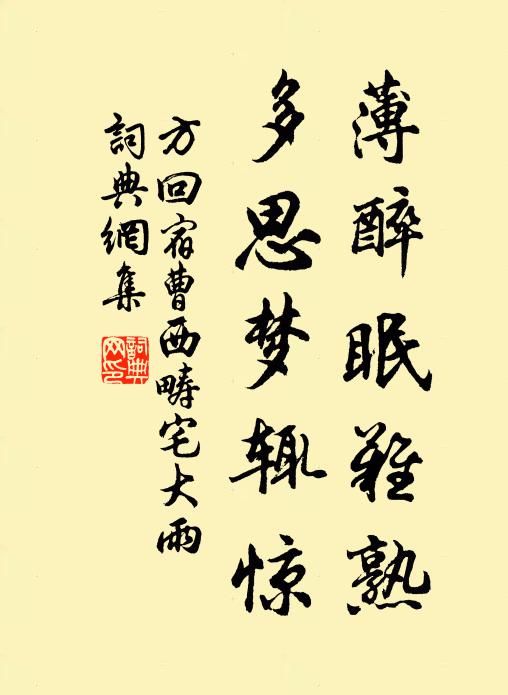 薄醉眠難熟
多思梦辄惊
方回宿曹西畴宅大雨
詞典網集
詞典網印